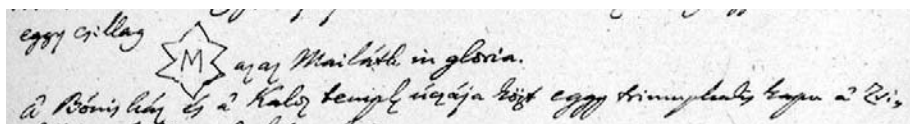 eggy csillag
M azaz Mailáth in gloria.
a' Bónis ház és a' Kalv templ úczája közt eggy triumphalis kapu a'